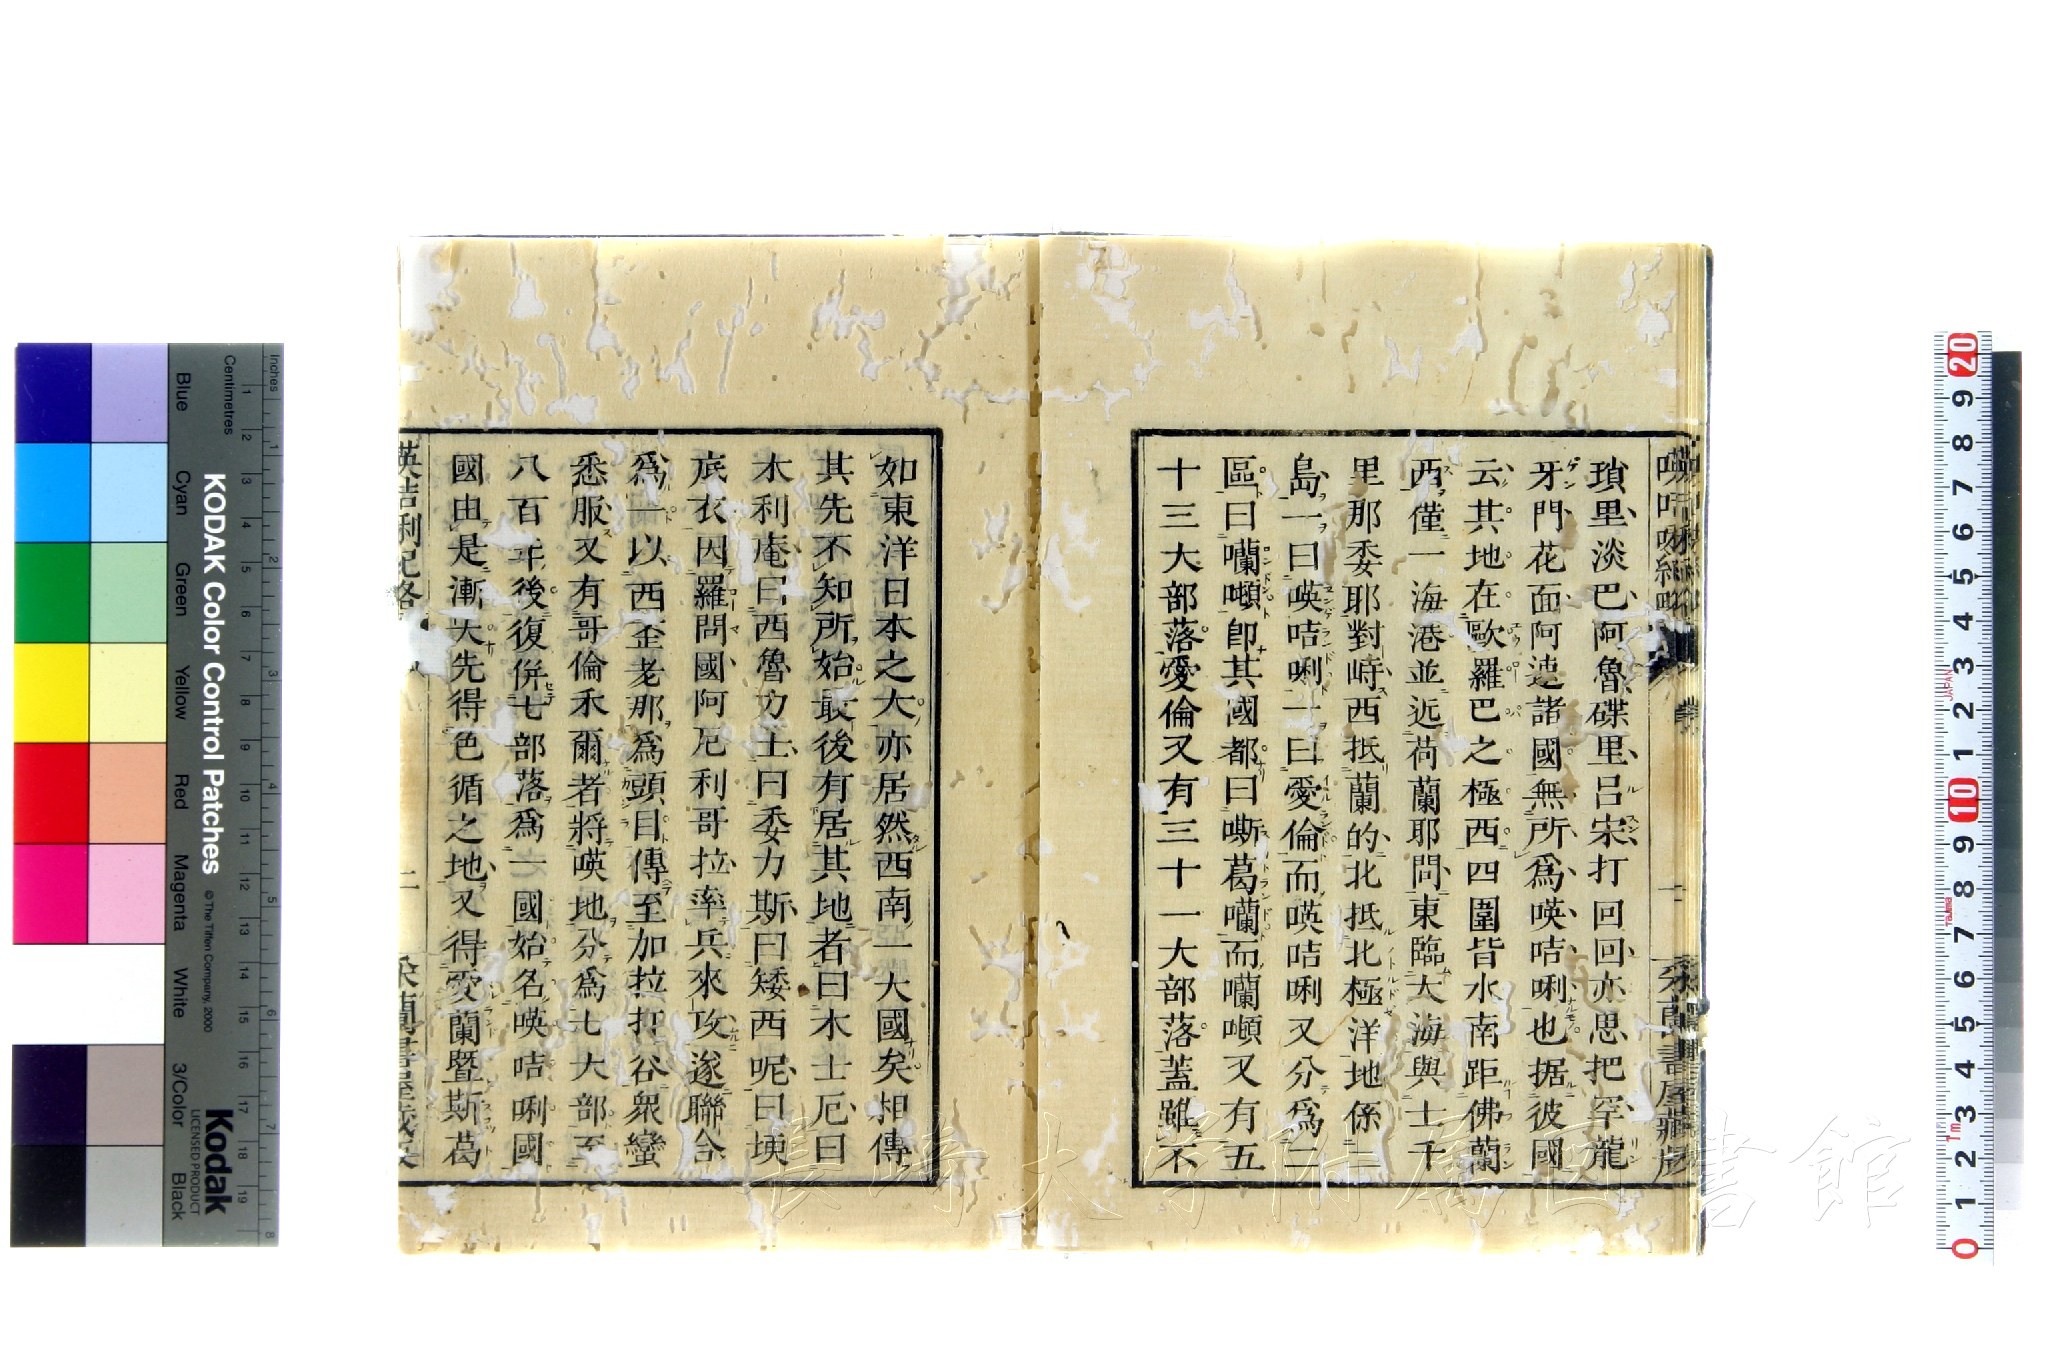 瑣里淡巴阿魯碟里呂宋打回回亦思把罕龍
牙門花面阿達諸國無所爲㗸咭唎也据彼國
云其地在歐羅巴之極西四圍皆水南距佛蘭
西僅一海港並近荷蘭耶問東臨大海與士千
里那委耶對峙西抵蘭的北抵北極洋地係二
島一曰㗸咭唎一曰愛倫而㗸咭唎又分爲二
區曰囒噸卽其國都曰嘶葛囒而囒噸又有五
十三大部落愛倫又有三十一大部落蓋雖不
如東洋日本之大亦居然西南一大國矣相傳
其先不知所始最後有居其地者曰木士厄曰
木利庵曰西魯力士曰委力斯曰矮西呢曰堧
底衣因羅問國阿厄利哥拉率兵來攻遂聯合
爲一以西歪老那爲頭目傳至加拉打谷衆蠻
悉服又有哥倫禾爾者將㗸地分爲七大部至
八百年後復併七部落爲一國始名㗸咭唎國
國由是漸大先得色循之地又得愛蘭暨斯葛
Blue
Cyan
Green
Yellow
Red
Magenta
White
3/Color
Black
Inches
Centimetres
KODAK Color Control Patches
© The Tiffen Company, 2000
Kodak
LICENSED PRODUCT
長崎大学附属図書館